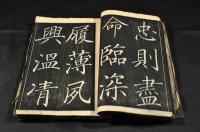 忠則盡
命臨深
履薄夙
興溫凊